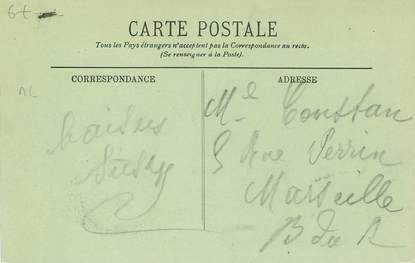 6f
CARTE POSTALE
Tous les Pays étrangers n'acceptent pas la Correspondance au recto.
(Se renseigner à la Poste).
CORRESPONDANCE
ADRESSE
AL
Baisers
Mˡᵉ Constan
5 Rue Perrin
Marseille
B du R